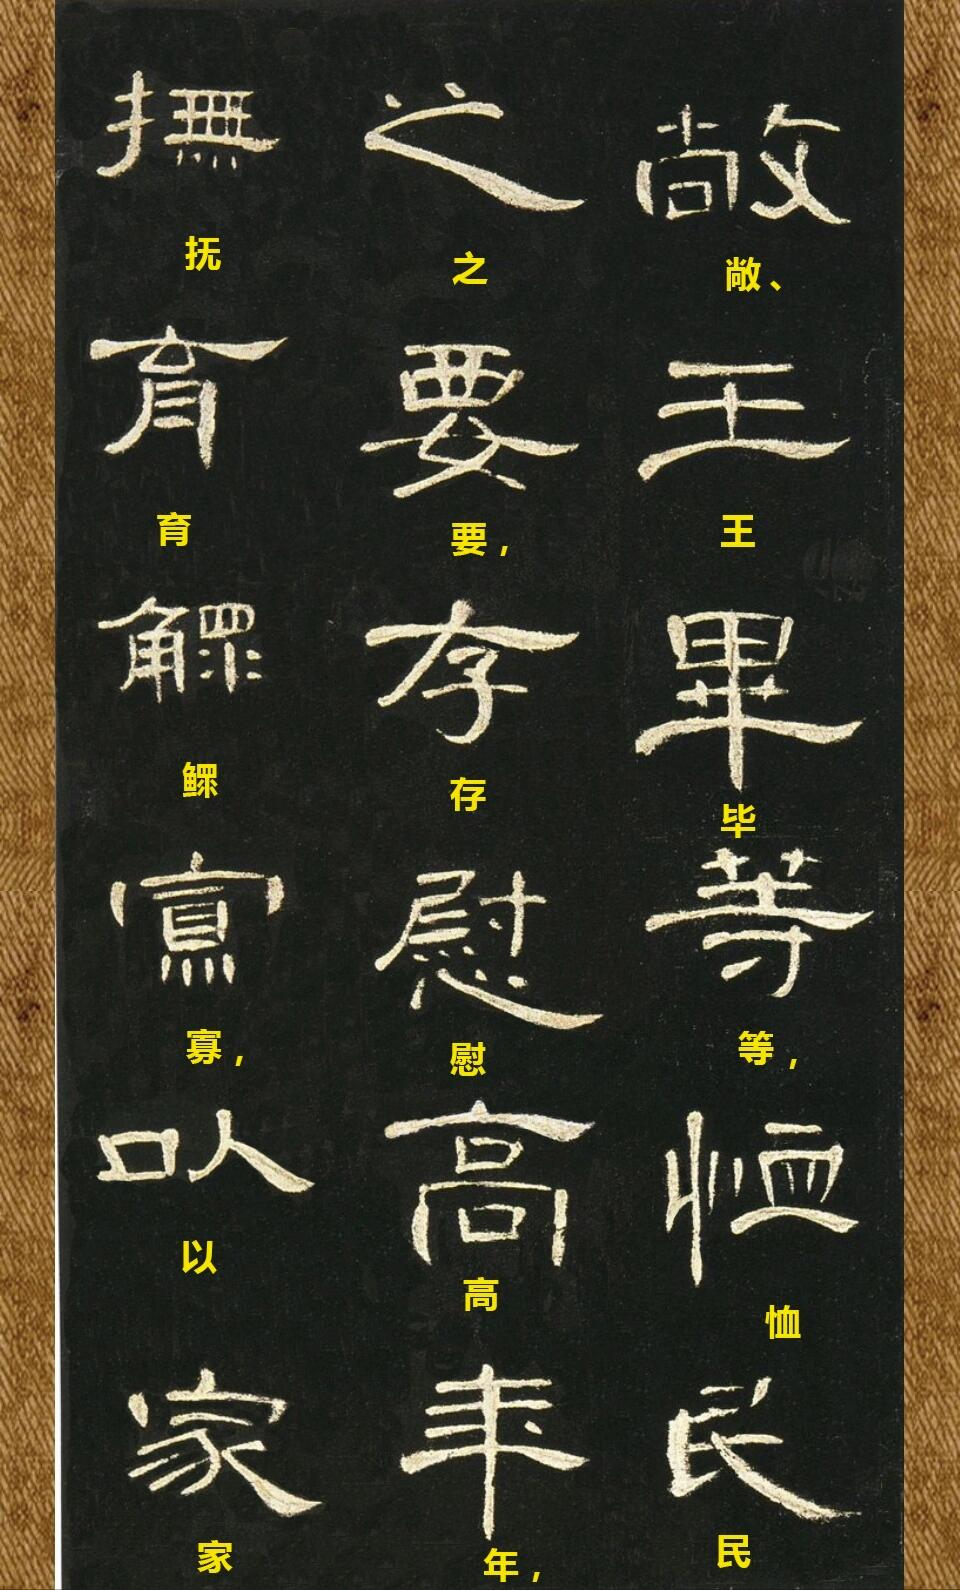 敞王畢等恤民
敞、王毕等，恤民
之要存慰高年
之要，存慰高年，
撫育鰥寡以家
抚育鳏寡，以家